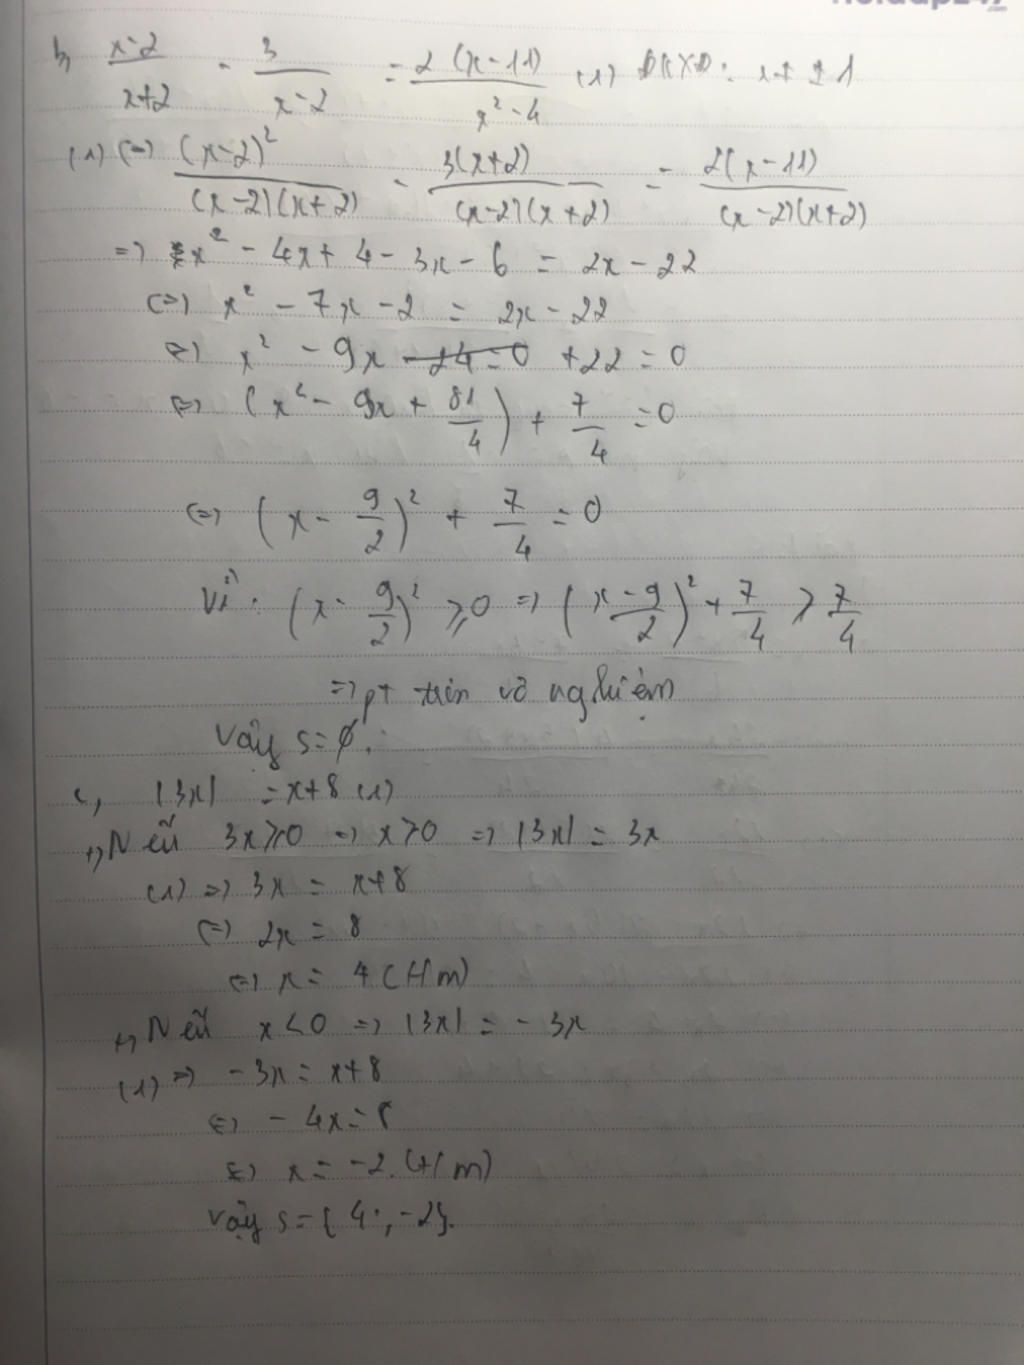 b, \frac{x-2}{x+2} - \frac{3}{x-2} = \frac{2(x-11)}{x^2-4} (1) ĐKXĐ: x ≠ ± 1
(1) (=) \frac{(x-2)^2}{(x-2)(x+2)} - \frac{3(x+2)}{(x-2)(x+2)} = \frac{2(x-11)}{(x-2)(x+2)}
=> x^2 - 4x + 4 - 3x - 6 = 2x - 22
(=) x^2 - 7x - 2 = 2x - 22
(=) x^2 - 9x - 24 = 0 + 22 = 0
(=) (x^2 - 9x + \frac{81}{4}) + \frac{7}{4} = 0
(=) (x - \frac{9}{2})^2 + \frac{7}{4} = 0
Vì: (x - \frac{9}{2})^2 ≥ 0 => (\frac{x-9}{2})^2 + \frac{7}{4} > \frac{7}{4}
=> pt trên vô nghiệm
Vậy S = ∅.
c, |3x| = x+8 (1)
+, Nếu 3x ≥ 0 => x ≥ 0 => |3x| = 3x
(1) => 3x = x+8
(=) 2x = 8
(=) x = 4 (t/m)
+, Nếu x < 0 => |3x| = - 3x
(1) => - 3x = x+8
(=) - 4x = 8
(=) x = -2. (t/m)
Vậy S = { 4; -2}.